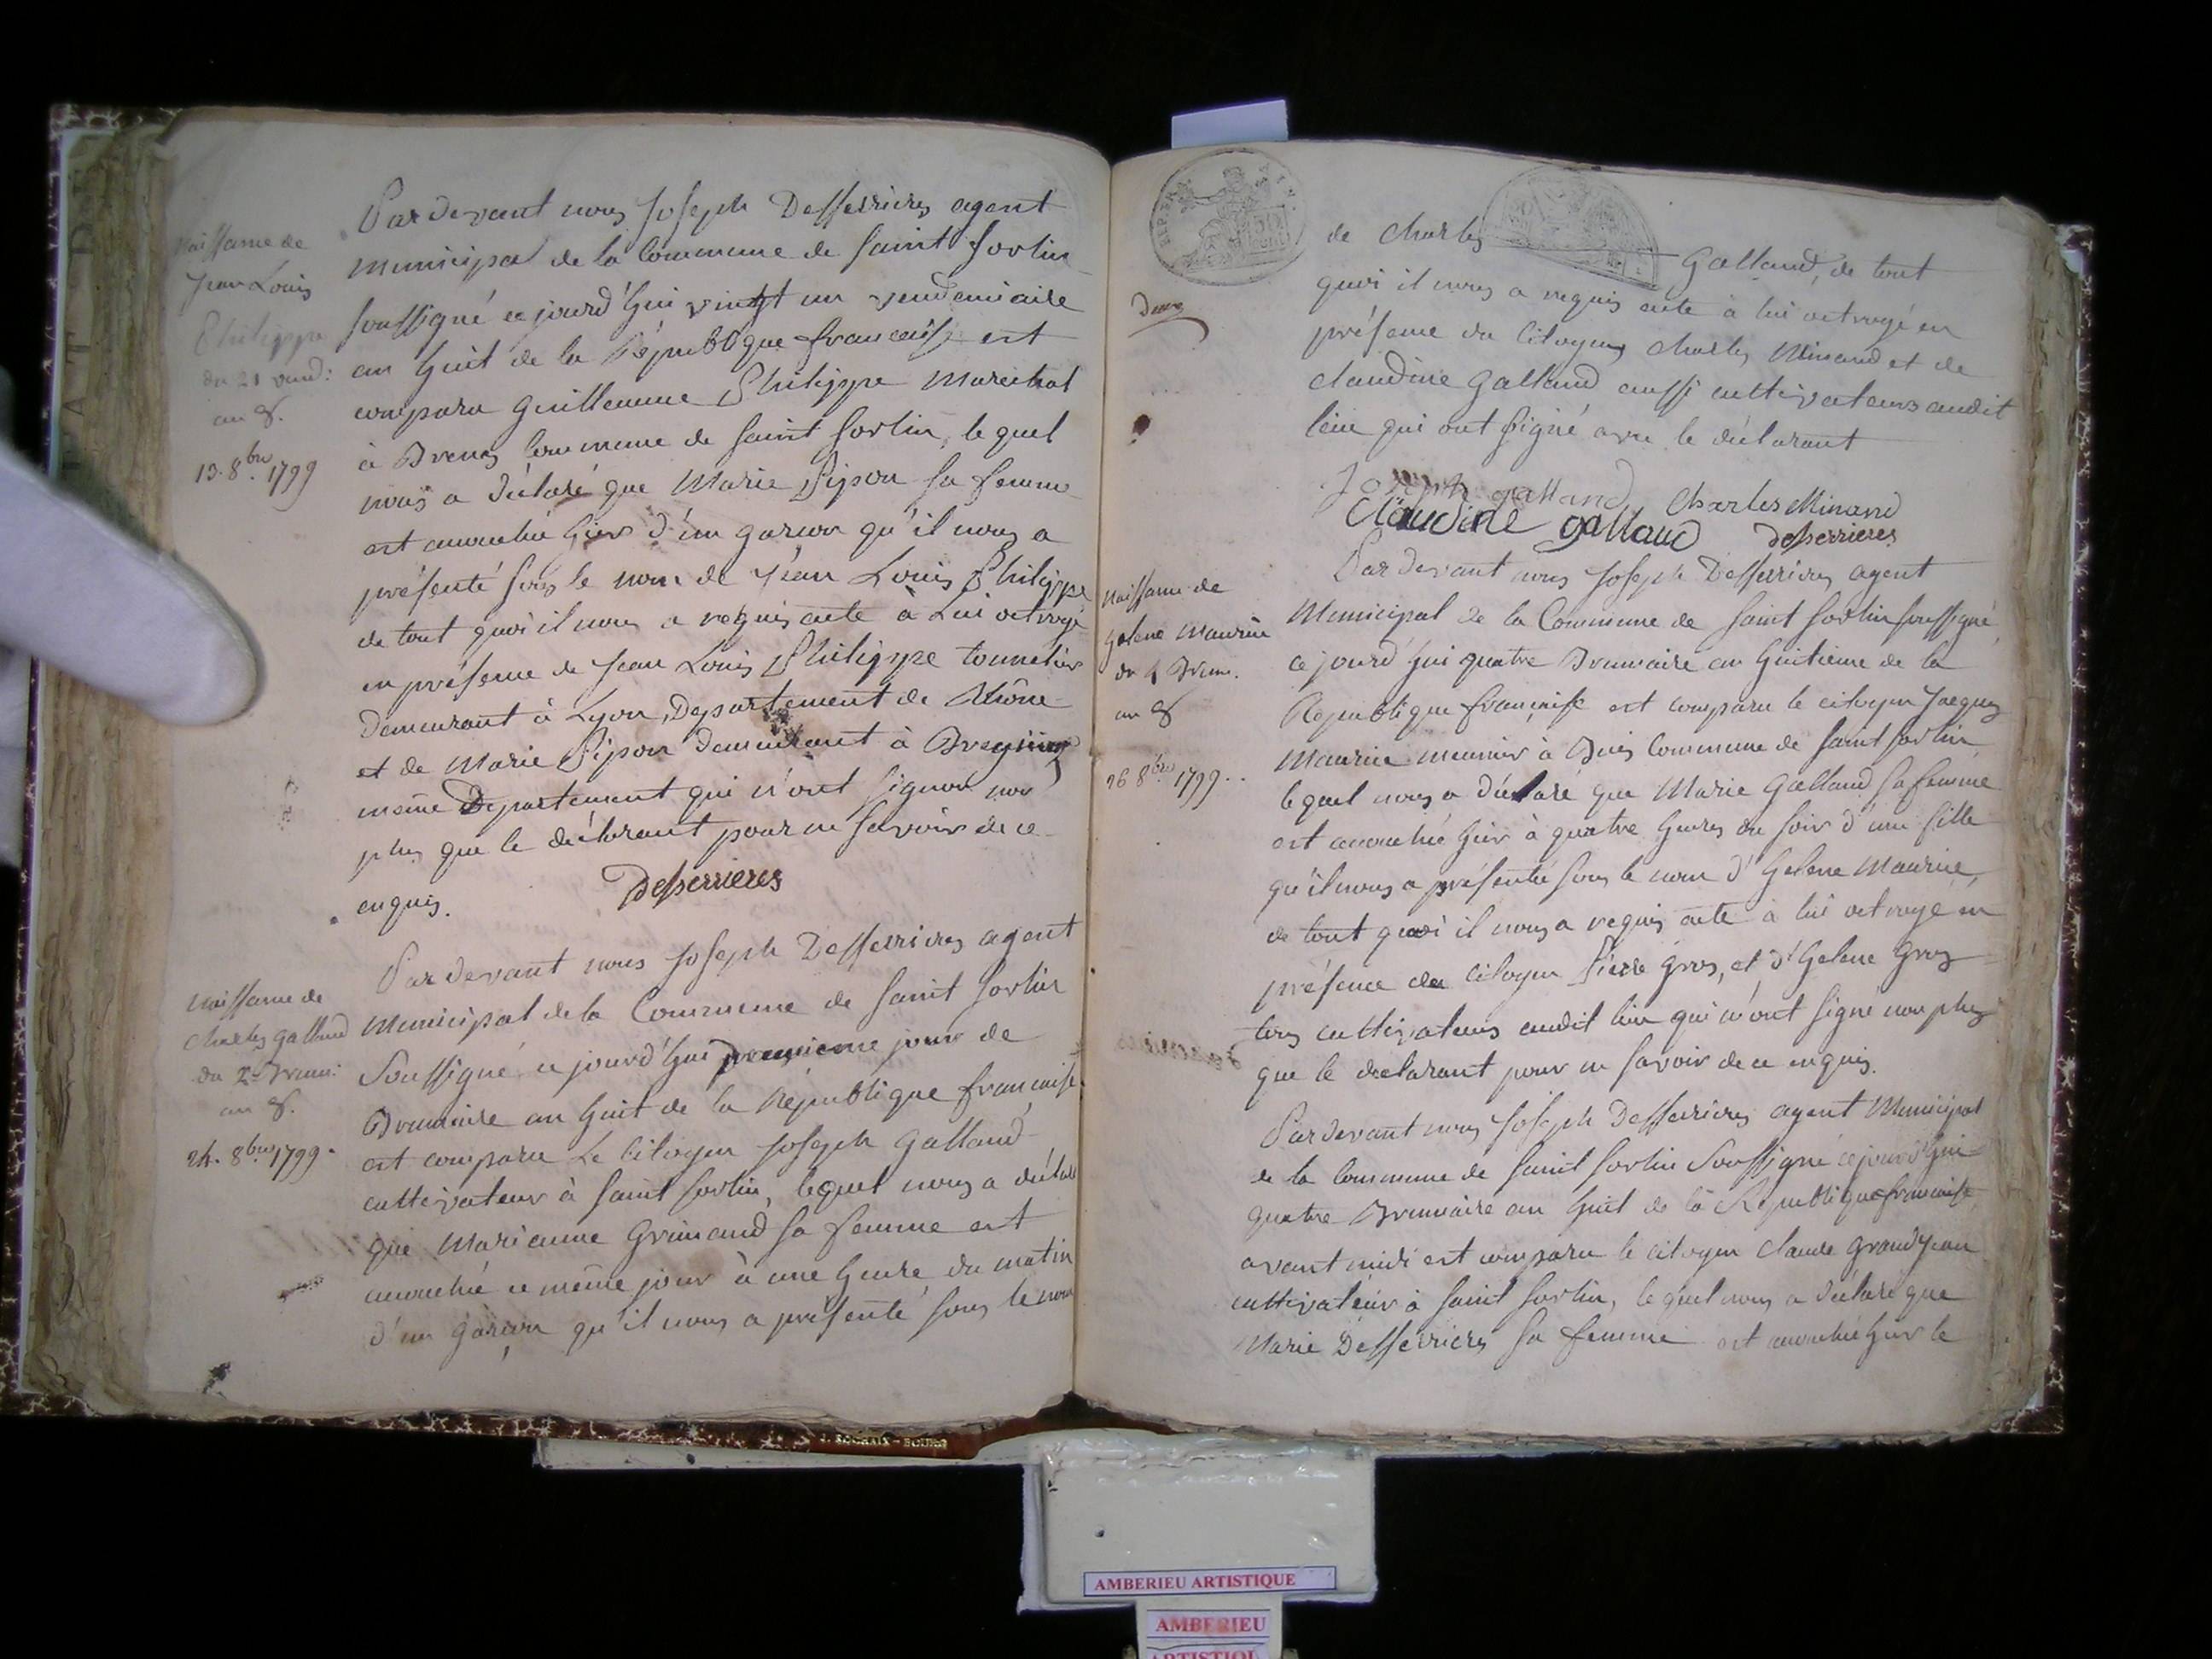 naissance de
Jean Louis
Philippe
du 21 vend:
an 8.
13. 8bre 1799
Par devant nous Joseph Desserrieres agent
municipal de la Commune de Saint Sorlin
soussigné ce jourd'hui vingt un vendemiaire
an huit de la République francaise est
comparu Guillaume Philippe marechal
à Brenas Commune de Saint Sorlin, lequel
nous a déclaré que Marie Pipon sa femme
est accouchée hier d'un garcon qu'il nous a
présenté sous le nom de Jean Louis Philippe
de tout quoi il nous a requis acte à Lui octroyé
en présence de Jean Louis Philippe tonnelier
demeurant à Lyon, Departement de Rhône
et de Marie Pipon demeurant à
même Departement qui n'ont signer non
plus que le déclarant pour ne savoir de ce
enquis. Desserrieres
naissance de
Charles galland
du 2 Brum:
an 8.
24. 8bre 1799.
Par devant nous Joseph Desserrieres agent
Municipal de la Commune de Saint Sorlin
Soussigné ce jourd'hui jour de
Brumaire an huit de la République francaise
est comparu Le Citoyen Joseph Galland
cultivateur à Saint Sorlin, lequel nous a déclaré
que Marianne Grimand sa femme est
accouchée ce même jour à une heure du matin
d'un garcon qu'il nous a présenté sous le nom
de Charles Galland, de tout
quoi il nous a requis acte à lui octroyé en
présence du Citoyens Charles Minand et de
Claudine Galland aussi cultivateurs audit
lieu qui ont signé avec le déclarant
Joseph galland Charles Minand
Claudine gallaud Desserrieres
naissance de
helene Maurice
du 4 Brum.
an 8
26 8bre 1799..
Par devant nous Joseph Desserrieres agent
Municipal de la Commune de Saint Sorlin soussigné
ce jourd'hui quatre Brumaire an huitieme de la
Republique française est comparu le citoyen Jacques
Maurice meunier à Buis Commune de Saint Sorlin
lequel nous a déclaré que Marie Galland sa femme
est accouchée hier à quatre heures du soir d'une fille
qu'il nous a présentée sous le nom d'helene Maurice,
de tout quoi il nous a requis acte à lui octroyé en
présence du Citoyen Pierre Gros, et d'helene Gros
tous cultivateurs audit lieu qui n'ont signé non plus
que le declarant pour ne savoir de ce enquis.
Par devant nous Joseph Desserrieres agent Municipal
de la Commune de Saint Sorlin Soussigné ce jourd'hui
quatre Brumaire an huit de la République francaise
avant midi est comparu le citoyen Claude Grandjean
cultivateur à Saint Sorlin, lequel nous a déclaré que
Marie Desserrieres sa femme est accouchée hier le
J. ROCHAIX - BOURG
AMBERIEU ARTISTIQUE
AMBERIEU
ARTISTIQUE